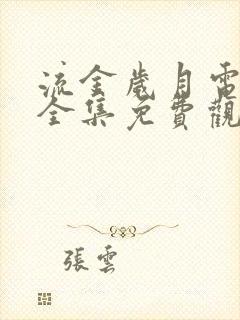 流金歲月電
全集免費觀
張雲